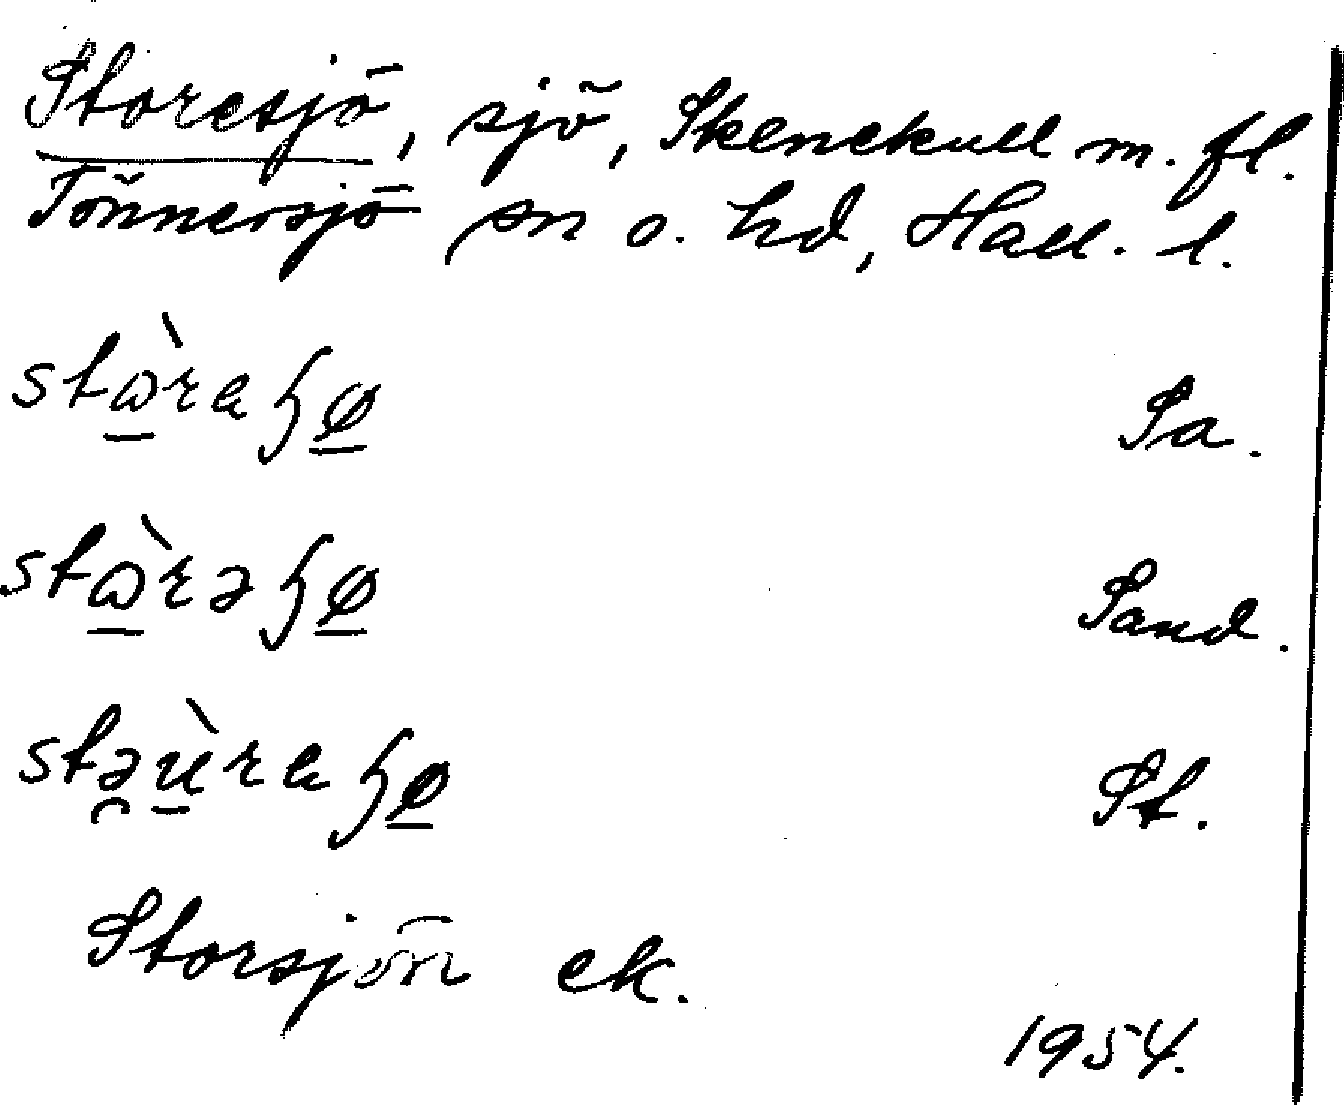 Storesjö, sjö, Skenekull m. fl.
Tönnersjö sn o. hd, Hall. l.
stɷ̲̀raɧø̲ Sa.
stɷ̲̀rəɧø̲ Sand.
stə̯ù̲raɧø̲ St.
Storsjön ek.
1954.